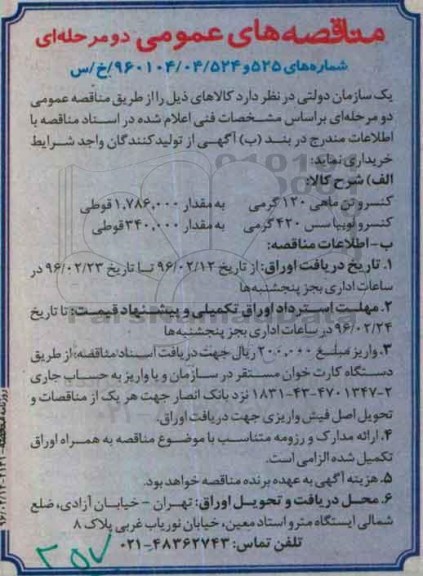 مناقصه‌های عمومی دو مرحله‌ای
شماره‌های ۵۲۵ و ۹۶۰۱۰۴/۰۴/۵۲۴/خ/س
یک سازمان دولتی در نظر دارد کالاهای ذیل را از طریق مناقصه عمومی
دو مرحله‌ای براساس مشخصات فنی اعلام شده در اسناد مناقصه با
اطلاعات مندرج در بند (ب) آگهی از تولیدکنندگان واجد شرایط
خریداری نماید:
الف) شرح کالا:
کنسرو تن ماهی ۱۲۰ گرمی به مقدار ۱,۷۸۶,۰۰۰ قوطی
کنسرو لوبیا سس ۴۲۰ گرمی به مقدار ۳۴۰,۰۰۰ قوطی
ب- اطلاعات مناقصه:
۱. تاریخ دریافت اوراق: از تاریخ ۹۶/۰۲/۱۲ تا تاریخ ۹۶/۰۲/۲۳ در
ساعات اداری بجز پنجشنبه‌ها
۲. مهلت استرداد اوراق تکمیلی و پیشنهاد قیمت: تا تاریخ
۹۶/۰۲/۲۴ در ساعات اداری بجز پنجشنبه‌ها
۳. واریز مبلغ ۲۰۰,۰۰۰ ریال جهت دریافت اسناد مناقصه از طریق
دستگاه کارت خوان مستقر در سازمان و یا واریز به حساب جاری
۲-۱۸۳۱-۴۳-۴۷۰۱۳۴۷ نزد بانک انصار جهت هر یک از مناقصات و
تحویل اصل فیش واریزی جهت دریافت اوراق.
۴. ارائه مدارک و رزومه متناسب با موضوع مناقصه به همراه اوراق
تکمیل شده الزامی است.
۵. هزینه آگهی به عهده برنده مناقصه خواهد بود.
۶. محل دریافت و تحویل اوراق: تهران - خیابان آزادی، ضلع
شمالی ایستگاه مترو استاد معین، خیابان نوریاب غربی پلاک ۸
تلفن تماس: ۴۸۳۶۲۷۴۳-۰۲۱